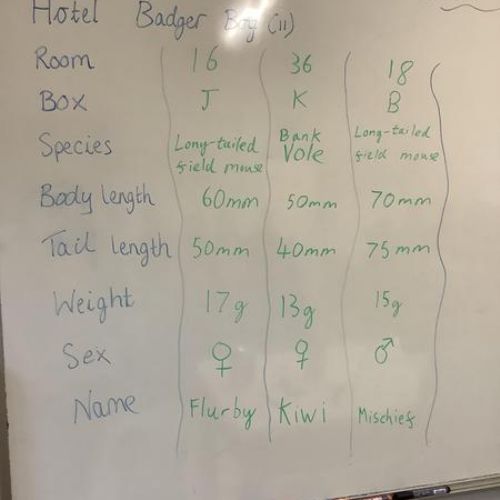 Hotel Badger Boy (11)
Room 16 36 18
Box J K B
Species Long-tailed field mouse Bank Vole Long-tailed field mouse
Body length 60mm 50mm 70mm
Tail length 50mm 40mm 75mm
Weight 17g 13g 15g
Sex ♀ ♀ ♂
Name Flurby Kiwi Mischief